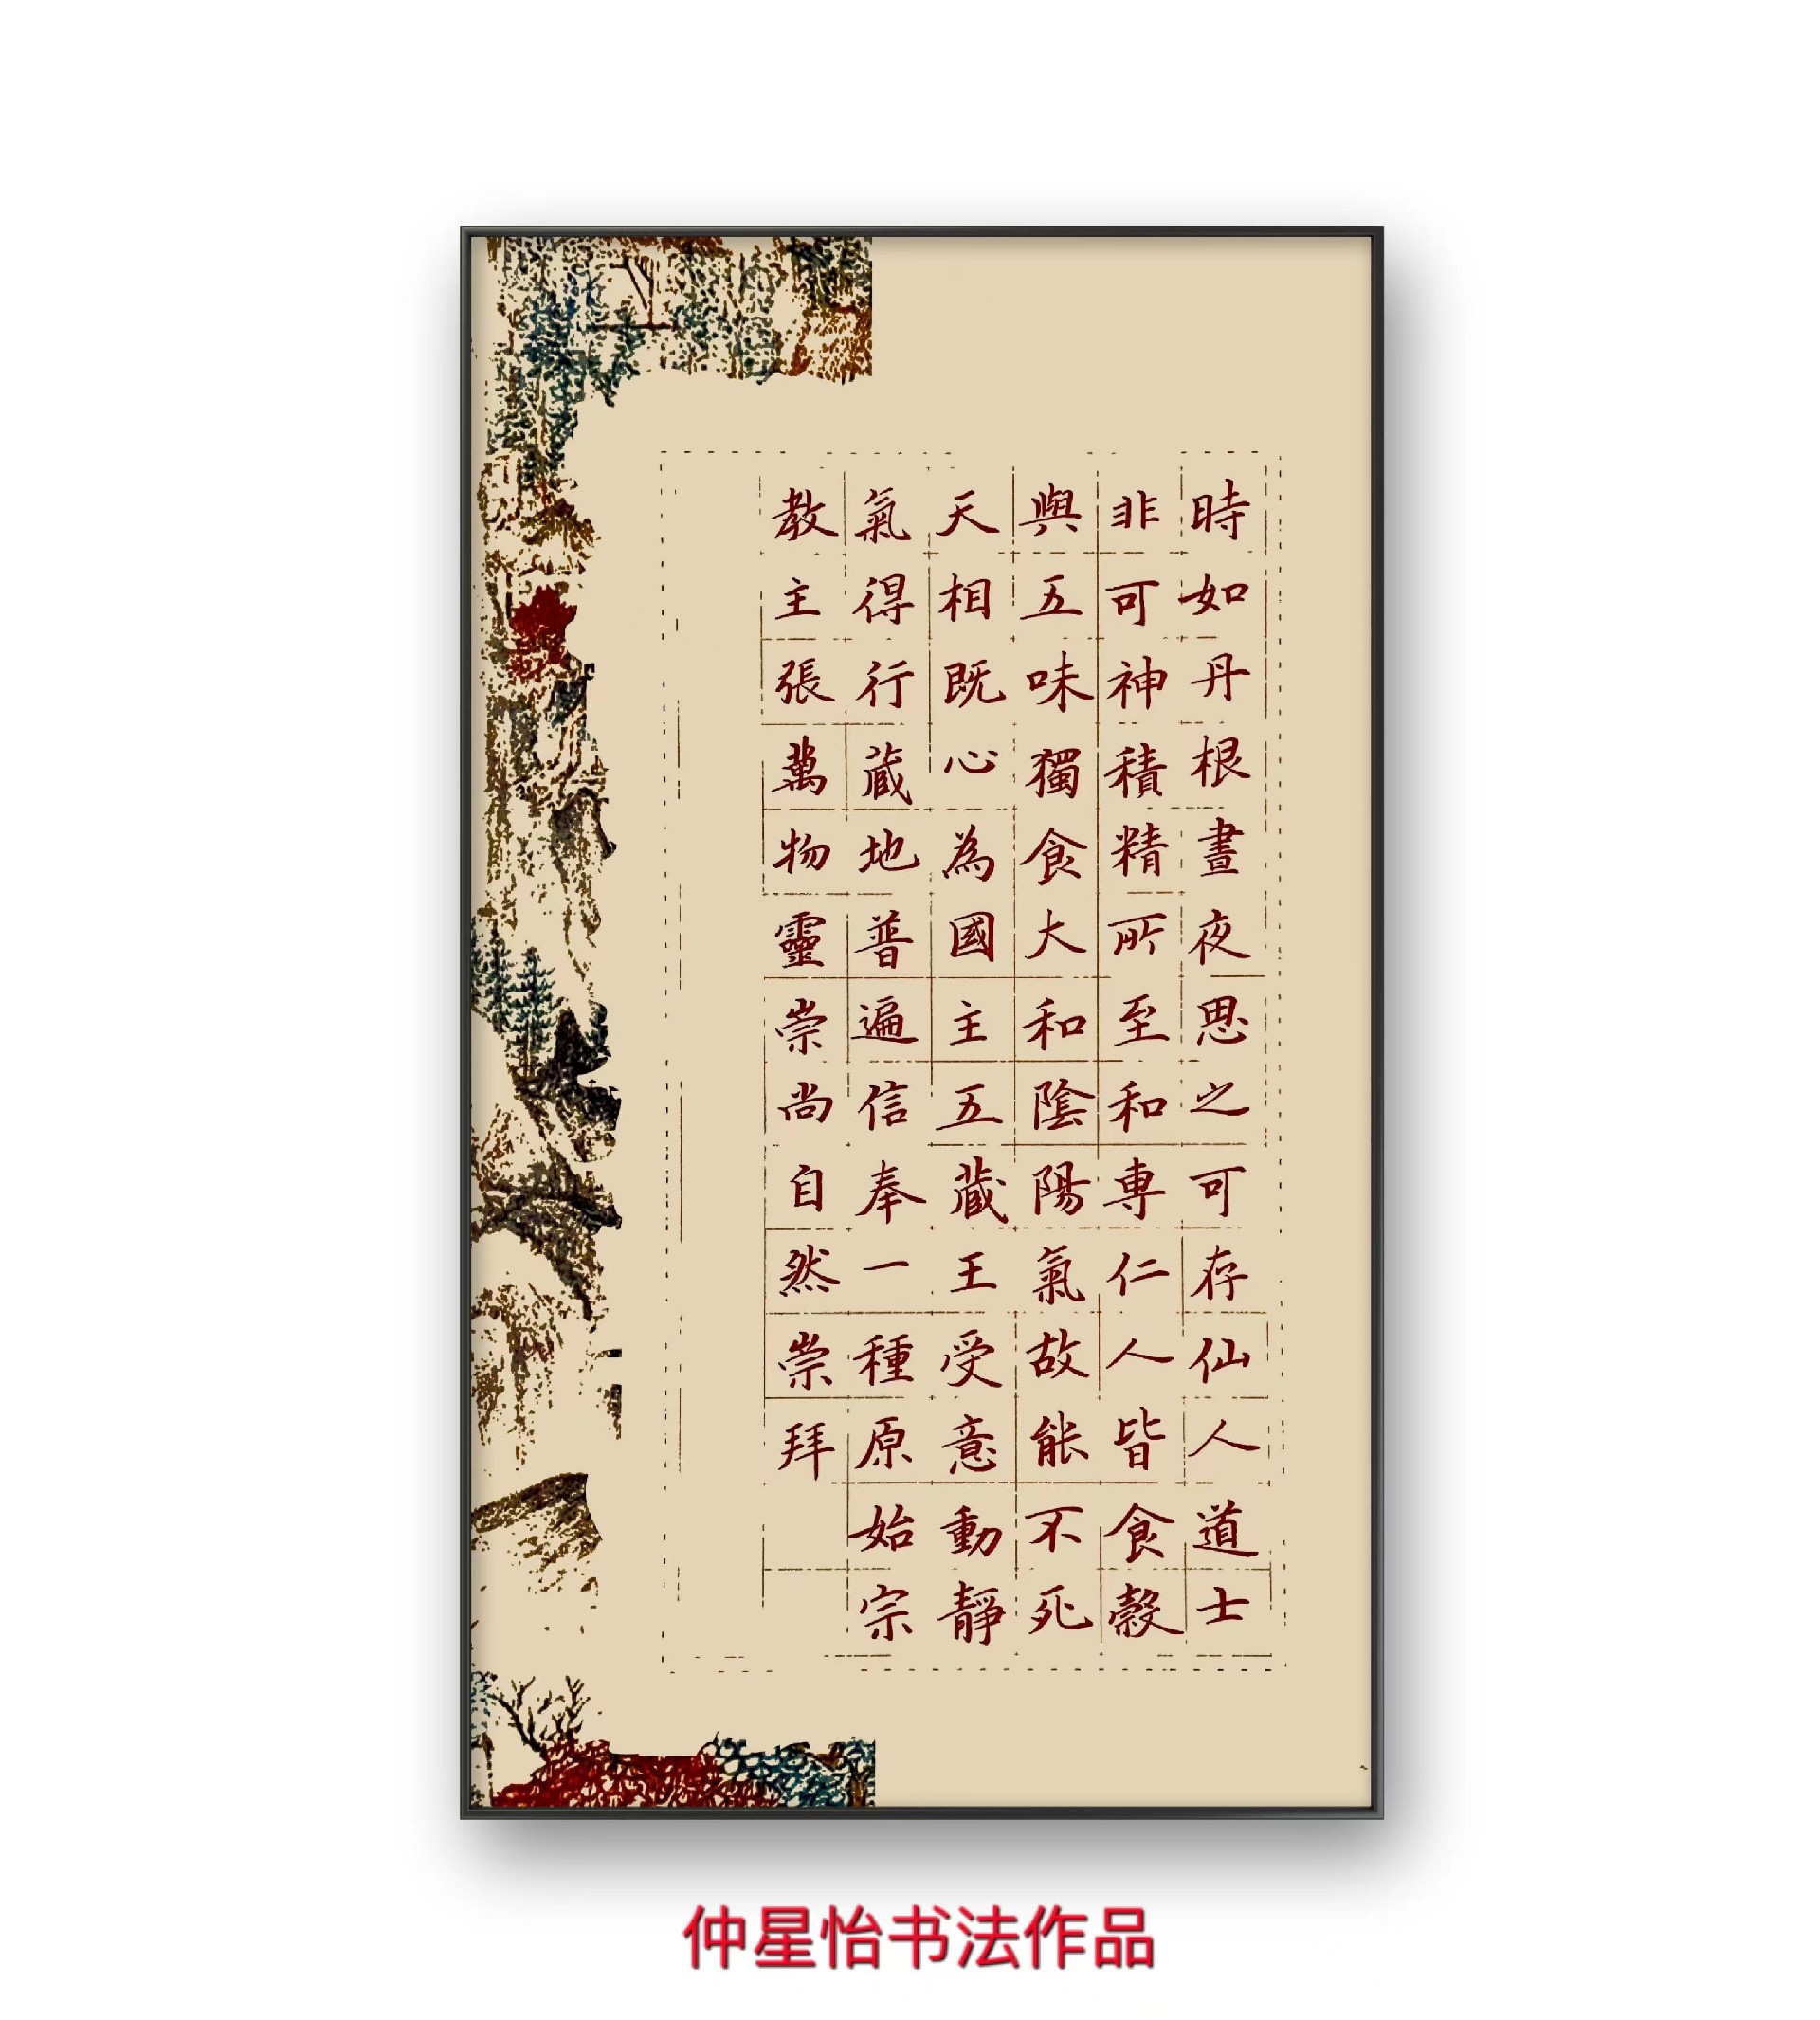 時如丹根晝夜思之可存仙人道士
非可神積精所至和専仁人皆食穀
與五味獨食大和陰陽氣故能不死
天相既心為國主五藏王受意動靜
氣得行蔵地普遍信奉一種原始宗
教主張萬物靈崇尚自然崇拜
仲星怡书法作品